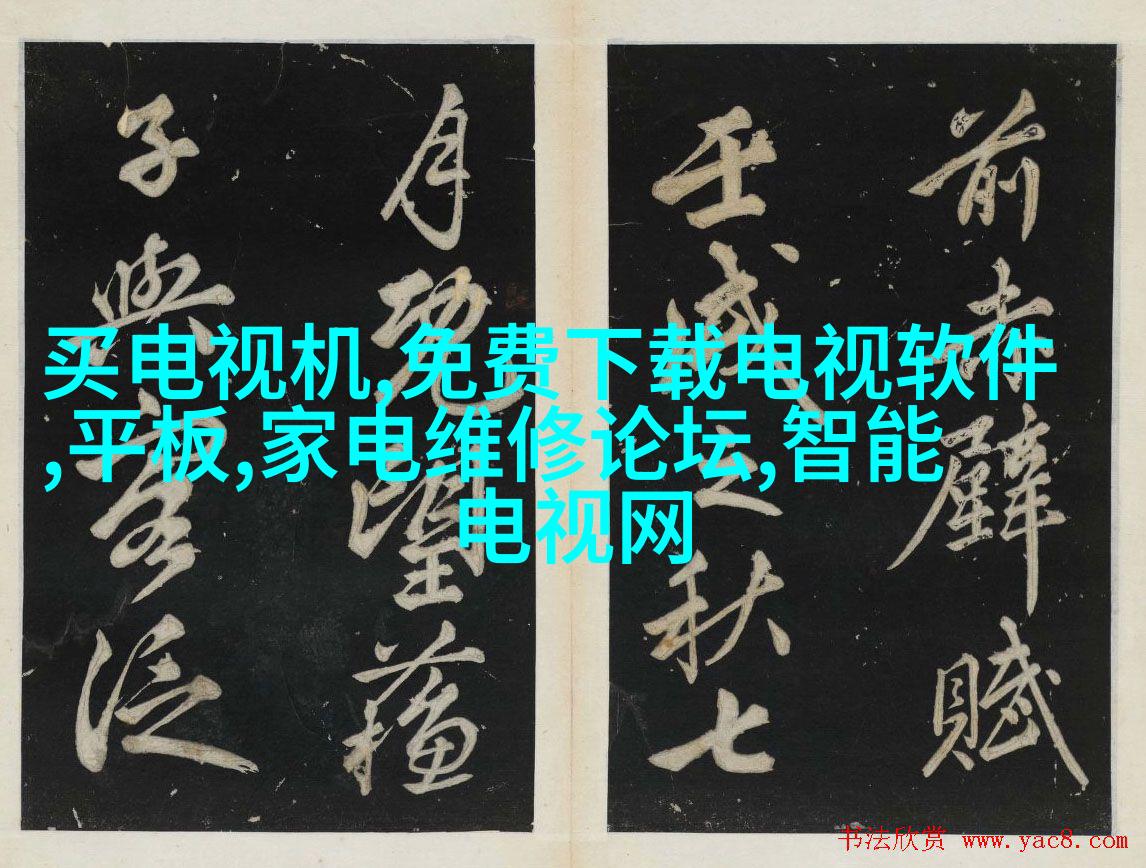 前赤壁賦
壬戌之秋七
月既望蘇
子與客泛
买电视机,免费下载电视软件
,平板,家电维修论坛,智能
电视网
书法欣赏 www.yac8.com